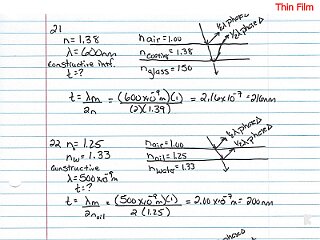 Thin Film
21
n = 1.38
λ = 600nm
Constructive intf.
t = ?
n air = 1.00
n coating = 1.38
n glass = 1.50
½λ phase Δ
½λ phase Δ
t = λm/2n = (600x10⁻⁹m)(1)/(2)(1.39) = 2.16x10⁻⁷ = 216nm
22 n = 1.25
nw = 1.33
Constructive
λ = 500x10⁻⁹m
t = ?
n air = 1.00
n oil = 1.25
n water = 1.33
½λ phase Δ
½λ phase Δ
t = λm/2n oil = (500x10⁻⁹m)(1)/2(1.25) = 2.00x10⁻⁷ = 200nm
phase Δ